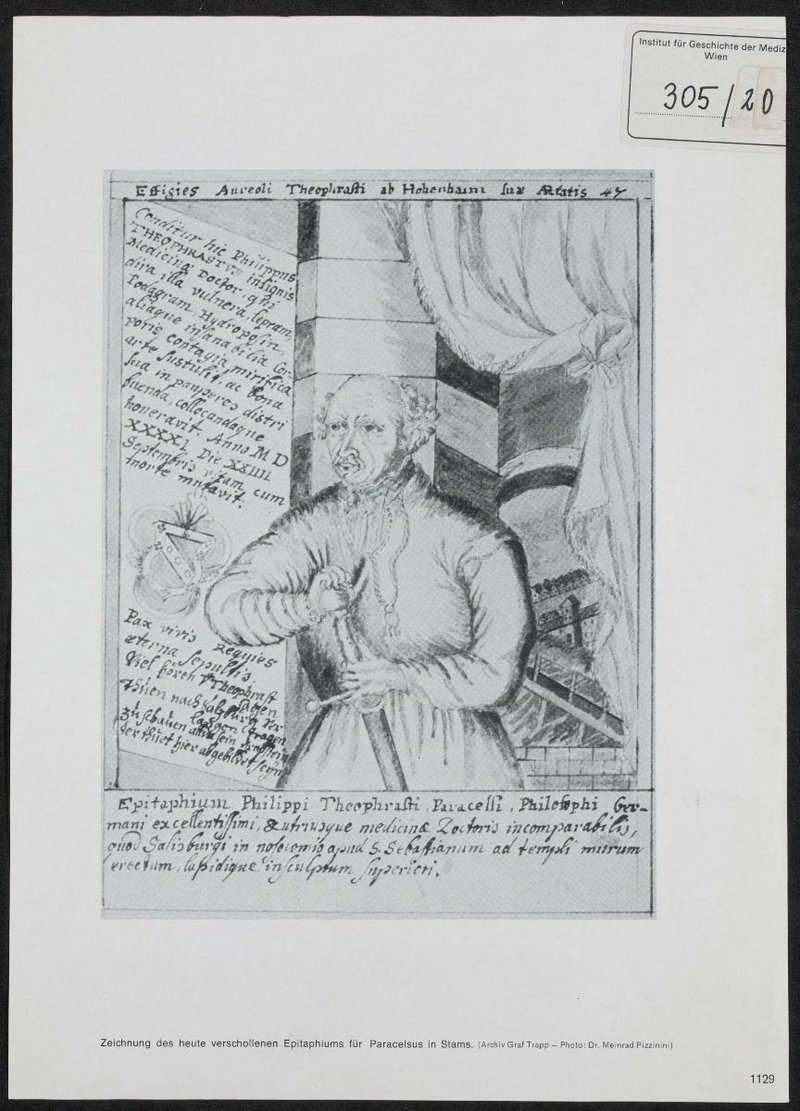 Institut für Geschichte der Mediz
Wien
305/20
Effigies Aureoli Theophrasti ab Hohenhaim suæ Ætatis 47
Conditur hic Philippus
THEOPHRASTVS insignis
Medicinæ Doctor, qui
dira illa vulnera, lepram,
Podagram, Hydroposin,
aliaque insanabilia Cor-
poris contagia mirifica
arte sustulit, ac bona
sua in pauperes distri
buenda, collocandaque
honeravit. Anno M D
XXXXI. Die XXIIII
Septembris vitam cum
morte mutavit.
Pax vivis Requies
æterna sepultis.
Viel hören Theophrast
sagen
Thuen nach Salzburg Ver
langen tragen
Zu schauen allda sein
der thuet hier abgebildet seyn
Epitaphium Philippi Theophrasti Paracelsi, Philosophi Ger-
mani excellentissimi, & utriusque medicinæ Doctoris incomparabilis,
quod Salisburgi in nosocomio apud S. Sebastianum ad templi murum
erectum, lapidique insculptum superieri.
Zeichnung des heute verschollenen Epitaphiums für Paracelsus in Stams. (Archiv Graf Trapp – Photo: Dr. Meinrad Pizzinini)
1129